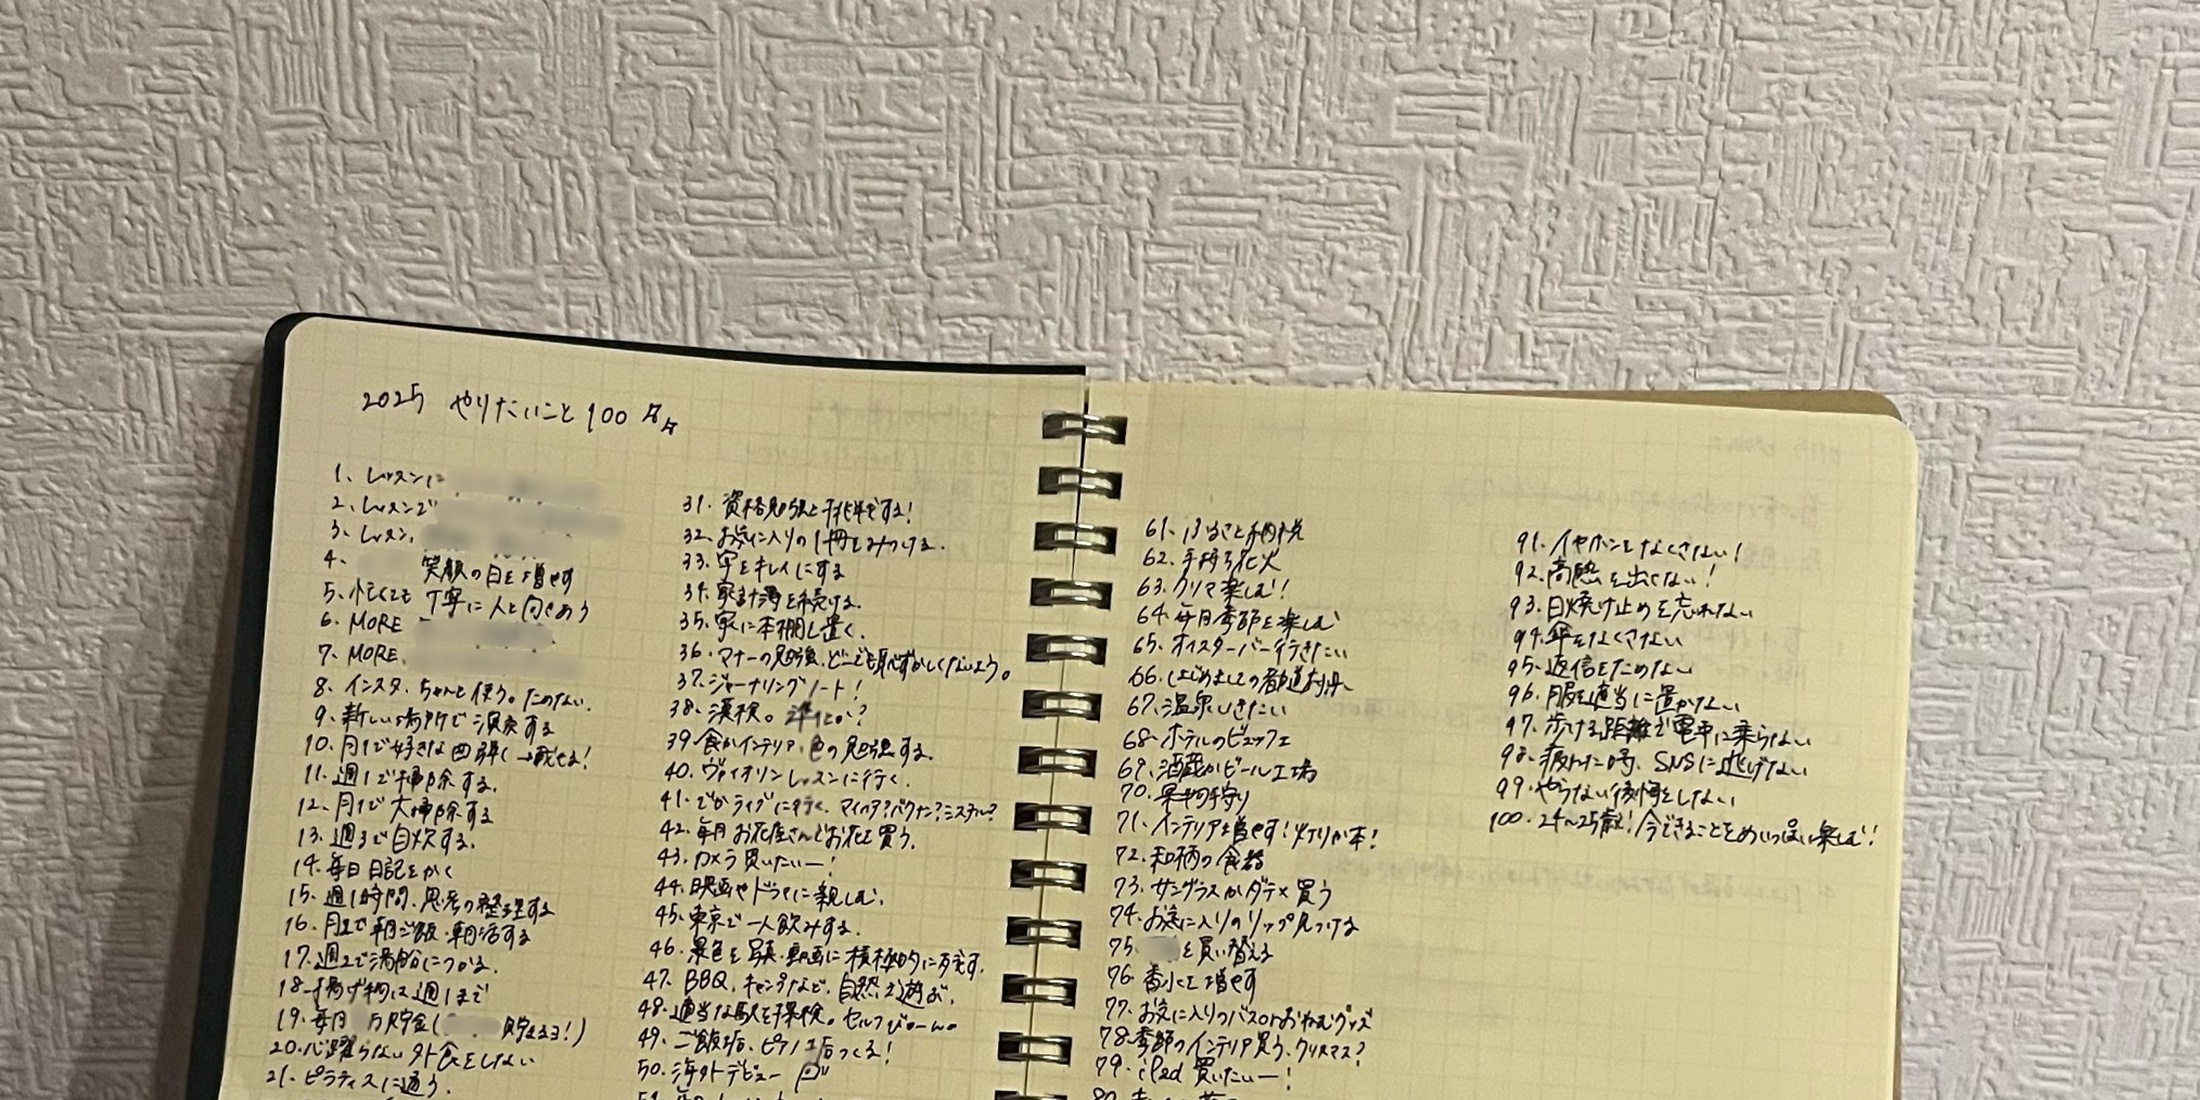 2025 やりたいこと100
1. レッスンに
2. レッスンで
3. レッスン
4. 笑顔の日を増やす
5. 忙しくても丁寧に人と向きあう
6. MORE
7. MORE
8. インスタ、ちゃんと使う。ためない。
9. 新しい場所で演奏する
10. 月1で好きな曲弾く→載せる!
11. 週1で掃除する。
12. 月1で大掃除する
13. 週3で自炊する。
14. 毎日日記をかく
15. 週1時間、思考の整理する
16. 月2で朝ご飯・朝活する
17. 週2で湯船につかる。
18. 揚げ物は週1まで
19. 毎月 万貯金( 貯まるヨ!)
20. 心躍らない外食をしない
21. ピラティスに通う。
31. 資格勉強と挑戦をする!
32. お気に入りの1冊をみつける。
33. 字をキレイにする
34. 家計簿を続ける。
35. 家に本棚を置く。
36. マナーの勉強、どこでも恥ずかしくないよう。
37. ジャーナリングノート!
38. 漢検。準1とか?
39. 食かインテリア、色の勉強する。
40. ヴァイオリンレッスンに行く。
41. でかライブに行く、マイヘア?バクナン?ミスチル?
42. 毎月お花屋さんでお花を買う。
43. カメラ買いたいー!
44. 映画やドラマに親しむ。
45. 東京で一人飲みする。
46. 景色を写真・動画に積極的に残す。
47. BBQ、キャンプなど、自然で遊ぶ。
48. 適当な駅を探検。セルフぴーんぐ
49. ご飯店、ピアノ店つくる!
50. 海外デビュー
61. ふるさと納税
62. 手持ち花火
63. クリマ楽しむ!
64. 毎月季節を楽しむ
65. オイスターバー行きたい
66. はじめましての都道府県へ
67. 温泉いきたい
68. ホテルのビュッフェ
69. 酒蔵かビール工場
70. 果物狩り
71. インテリア増やす!灯りか本!
72. 和柄の食器
73. サングラスかダテメ買う
74. お気に入りのリップ見つける
75. を買い替える
76. 香水を増やす
77. お気に入りのバスorおやすみグッズ
78. 季節のインテリア買う、クリスマス?
79. iPad 買いたいー!
91. イヤホンをなくさない!
92. 高熱を出さない!
93. 日焼け止めを忘れない
94. 傘をなくさない
95. 返信をためない
96. 服を適当に置かない
97. 歩ける距離で電車に乗らない
98. 疲れた時、SNSに逃げない
99. やらない後悔をしない
100. 24~25歳!今できることをめいっぱい楽しむ!